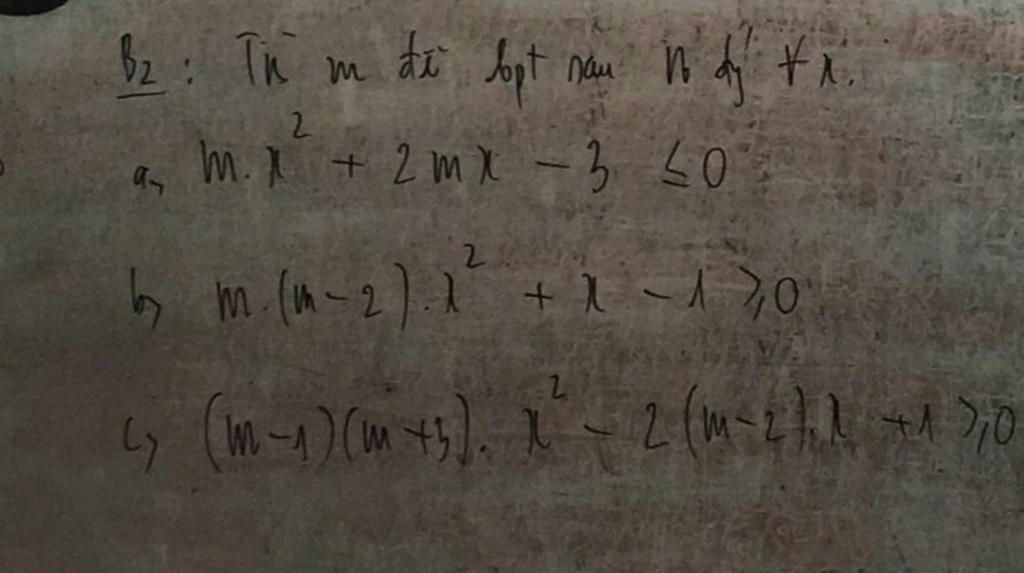 B2 : Tìm m để bpt sau n đ ∀ x.
a, m.x² + 2mx - 3 ≤ 0
b, m.(m-2).x² + x - 1 ≥ 0
c, (m-1)(m+3).x² - 2(m-2).x + 1 ≥ 0